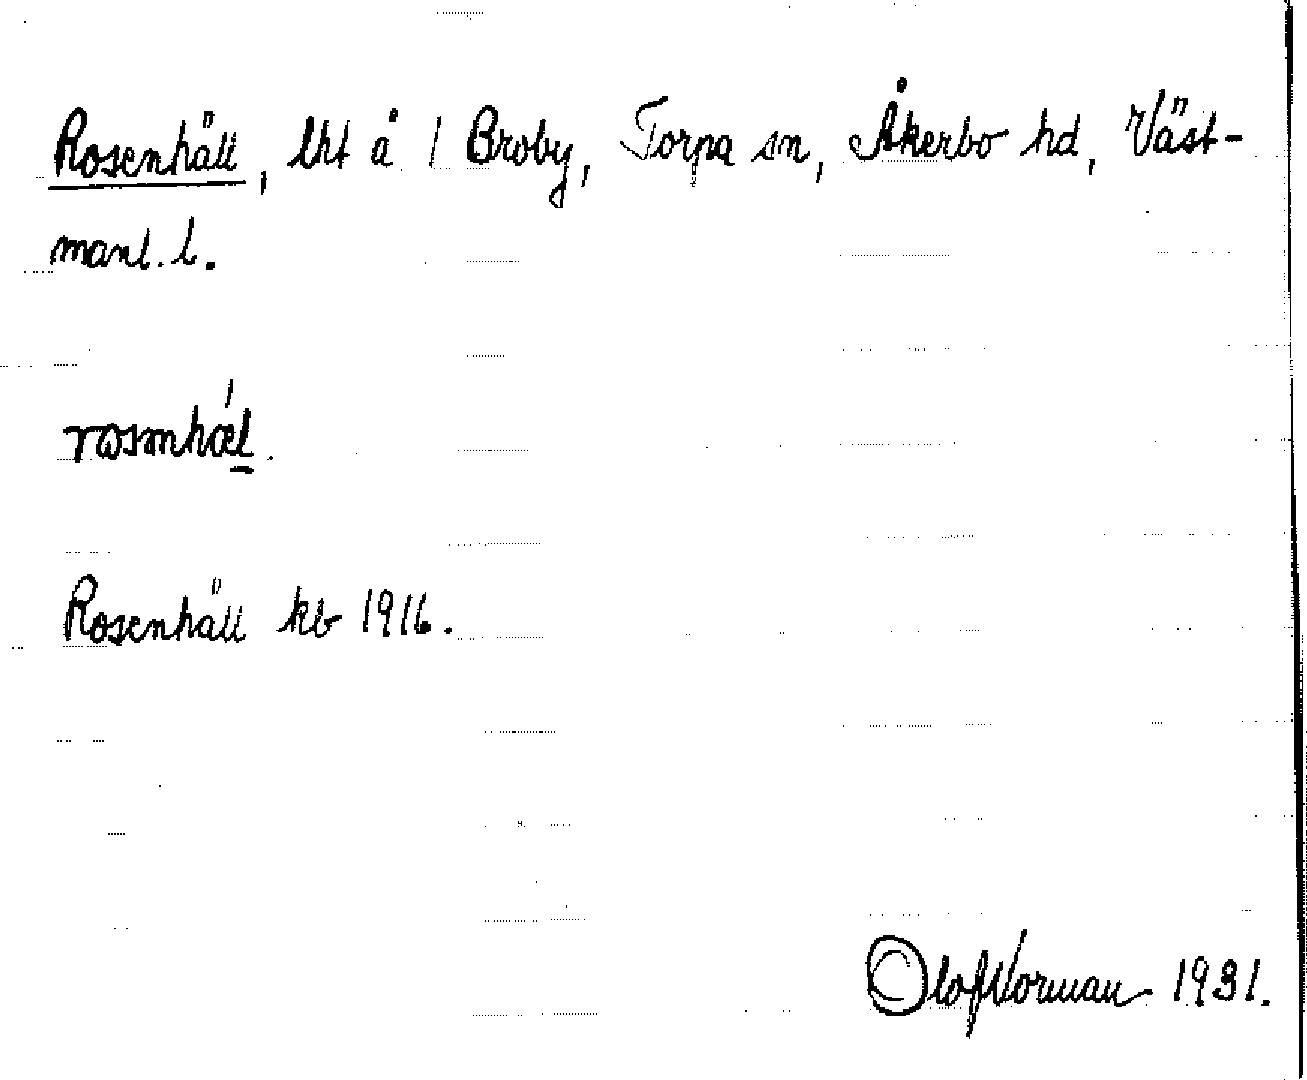 Rosenhäll, lht å 1 Broby, Torpa sn, Åkerbo hd, Väst-
manl. l.
rosmhæ̀l.
Rosenhäll kb 1916.
Olof Norman 1931.